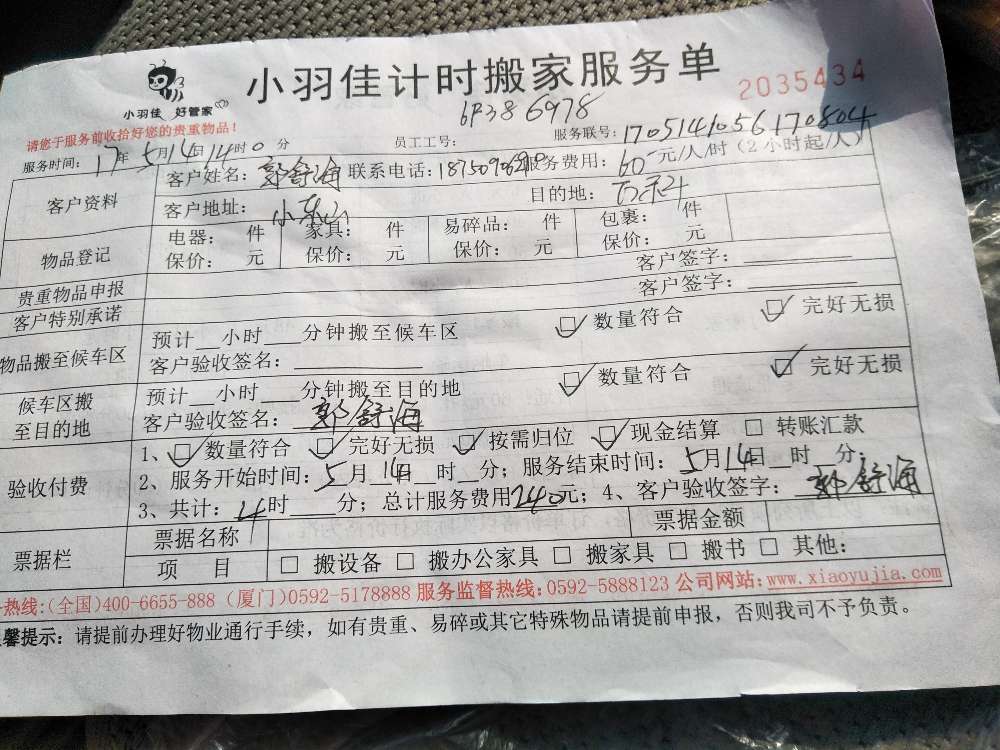 小羽佳计时搬家服务单
小羽佳 好管家
2035434
请您于服务前收拾好您的贵重物品!
员工工号: 6F386978
服务联号: 1705141056170804
服务时间: 17年5月14日14时0分
客户资料
客户姓名: 郭舒海 联系电话: 服务费用: 60元/人/时(2小时起/人)
客户地址: 小东山 目的地:
物品登记
电器: 件 家具: 件 易碎品: 件 包裹: 件
保价: 元 保价: 元 保价: 元 保价: 元
贵重物品申报 客户签字:
客户特别承诺 客户签字:
物品搬至候车区
预计 小时 分钟搬至候车区 ☑数量符合 ☑完好无损
客户验收签名:
候车区搬
至目的地
预计 小时 分钟搬至目的地 ☑数量符合 ☑完好无损
客户验收签名: 郭舒海
验收付费
1、☑数量符合 ☑完好无损 ☑按需归位 ☑现金结算 □转账汇款
2、服务开始时间: 5月14日 时 分; 服务结束时间: 5月14日 时 分;
3、共计: 4时 分; 总计服务费用240元; 4、客户验收签字: 郭舒海
票据栏
票据名称 票据金额
项 目 □搬设备 □搬办公家具 □搬家具 □搬书 □其他:
热线:(全国)400-6655-888 (厦门)0592-5178888 服务监督热线:0592-5888123 公司网站:www.xiaoyujia.com
馨提示: 请提前办理好物业通行手续, 如有贵重、易碎或其它特殊物品请提前申报, 否则我司不予负责。